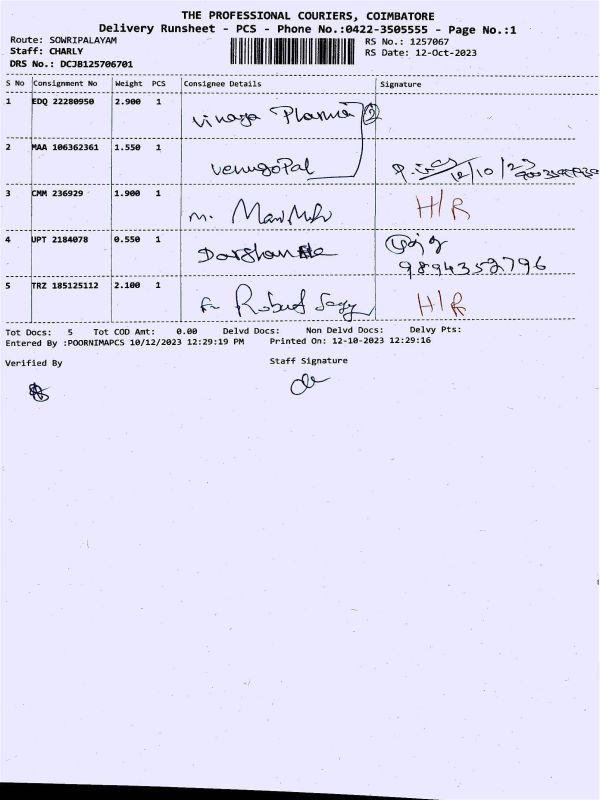 THE PROFESSIONAL COURIERS, COIMBATORE
Delivery Runsheet - PCS - Phone No.:0422-3505555 - Page No.:1
Route: SOWRIPALAYAM
RS No.: 1257067
Staff: CHARLY
RS Date: 12-Oct-2023
DRS No.: DCJB125706701
S No Consignment No Weight PCS Consignee Details Signature
1 EDQ 22280950 2.900 1 Vinaga 2
2 MAA 106362361 1.550 1 Venugopal 12/10/23
3 CMM 236929 1.900 1 M. H/R
4 UPT 2184078 0.550 1 Darshan
9894352796
5 TRZ 185125112 2.100 1 Robert H/R
Tot Docs: 5 Tot COD Amt: 0.00 Delvd Docs: Non Delvd Docs: Delvy Pts:
Entered By :POORNIMAPCS 10/12/2023 12:29:19 PM Printed On: 12-10-2023 12:29:16
Verified By Staff Signature